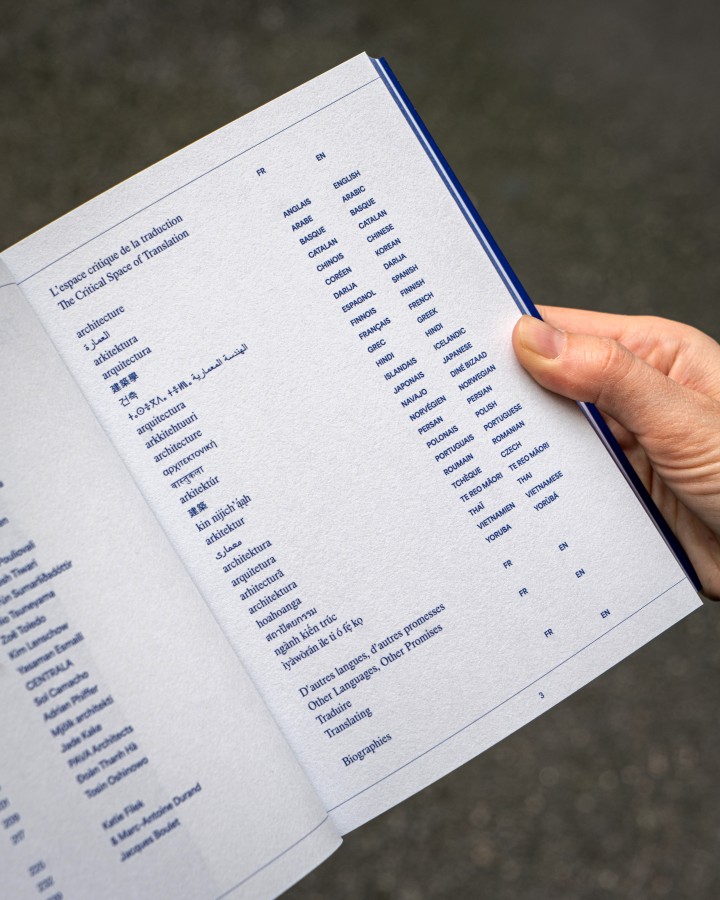 Pouliovali
Tiwari
Sumarliðadóttir
Tsuneyama
Zoé Toledo
Kim Lenschow
Yasaman Esmaili
CENTRALA
Sol Camacho
Adrian Phiffer
Mjölk architekti
Jade Kake
PAVA Architects
Đoàn Thanh Hà
Tosin Oshinowo
Katie Filek
& Marc-Antoine Durand
Jacques Boulet
209
217
225
FR EN
L'espace critique de la traduction
The Critical Space of Translation
architecture ANGLAIS ENGLISH
العمارة ARABE ARABIC
arkitektura BASQUE BASQUE
arquitectura CATALAN CATALAN
建築學 CHINOIS CHINESE
건축 CORÉEN KOREAN
الهندسة المعمارية DARIJA DARIJA
arquitectura ESPAGNOL SPANISH
arkkitehtuuri FINNOIS FINNISH
architecture FRANÇAIS FRENCH
αρχιτεκτονική GREC GREEK
वास्तुकला HINDI HINDI
arkitektúr ISLANDAIS ICELANDIC
建築 JAPONAIS JAPANESE
kin nijích'ąąh NAVAJO DINÉ BIZAAD
arkitektur NORVÉGIEN NORWEGIAN
معماری PERSAN PERSIAN
architektura POLONAIS POLISH
arquitetura PORTUGAIS PORTUGUESE
arhitectură ROUMAIN ROMANIAN
architektura TCHÈQUE CZECH
hoahoanga TE REO MĀORI TE REO MĀORI
สถาปัตยกรรม THAÏ THAI
ngành kiến trúc VIETNAMIEN VIETNAMESE
iyàwòrán ile tí ó fẹ́ kọ YORUBA YORÙBÁ
D'autres langues, d'autres promesses FR EN
Other Languages, Other Promises
Traduire FR EN
Translating
Biographies FR EN
3